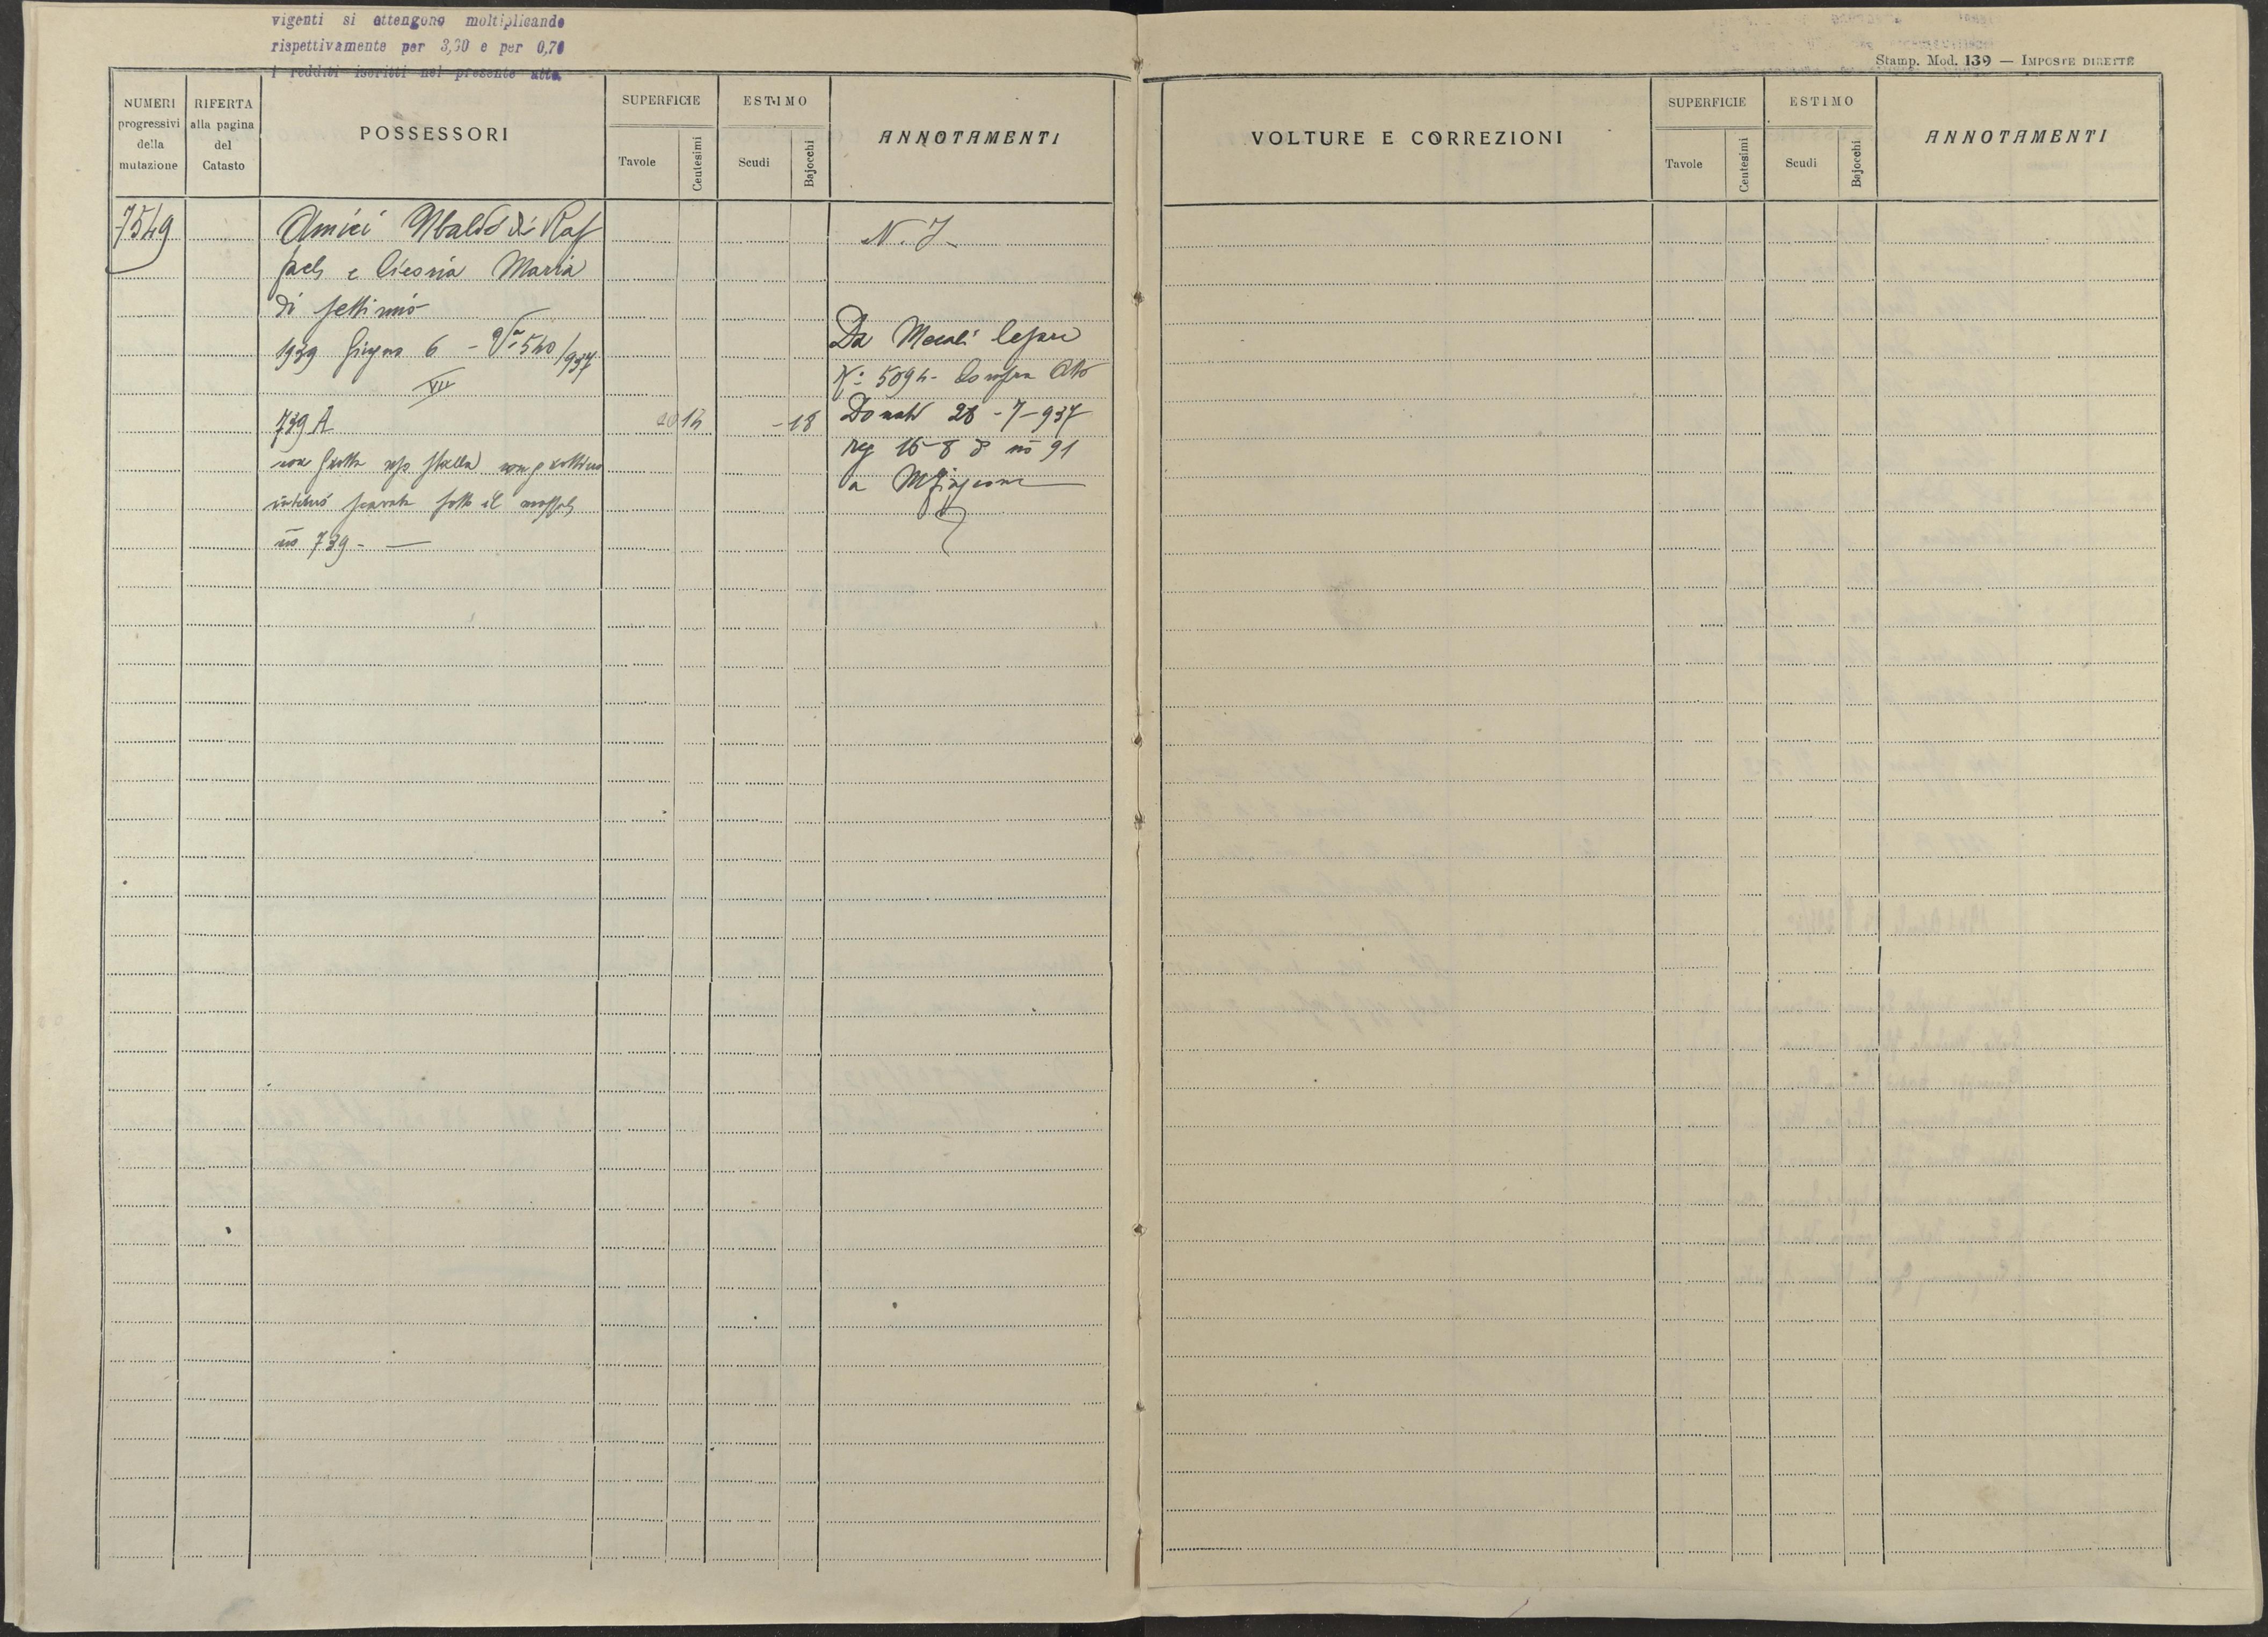 vigenti si ottengono moltiplicando
rispettivamente per 3,30 e per 0,70
i redditi iscritti nel presente atto.
NUMERI progressivi della mutazione
RIFERTA alla pagina del Catasto
POSSESSORI
SUPERFICIE
Tavole
Centesimi
ESTIMO
Scudi
Bajocchi
ANNOTAMENTI
7549
Amici Ubaldo di Raf
faele e Maria
di Settimio
1939 Giugno 6 - 540/937
VII
739 A
14
- 18
una Grotta uso stalla con grottino
interno scavata sotto il
no 739 -
N. I.
Da Mecali Cesare
No 5094 - Compra Atto
Donati 28-7-937
reg 16-8 no 91
a
Stamp. Mod. 139 — IMPOSTE DIRETTE
VOLTURE E CORREZIONI
SUPERFICIE
Tavole
Centesimi
ESTIMO
Scudi
Bajocchi
ANNOTAMENTI